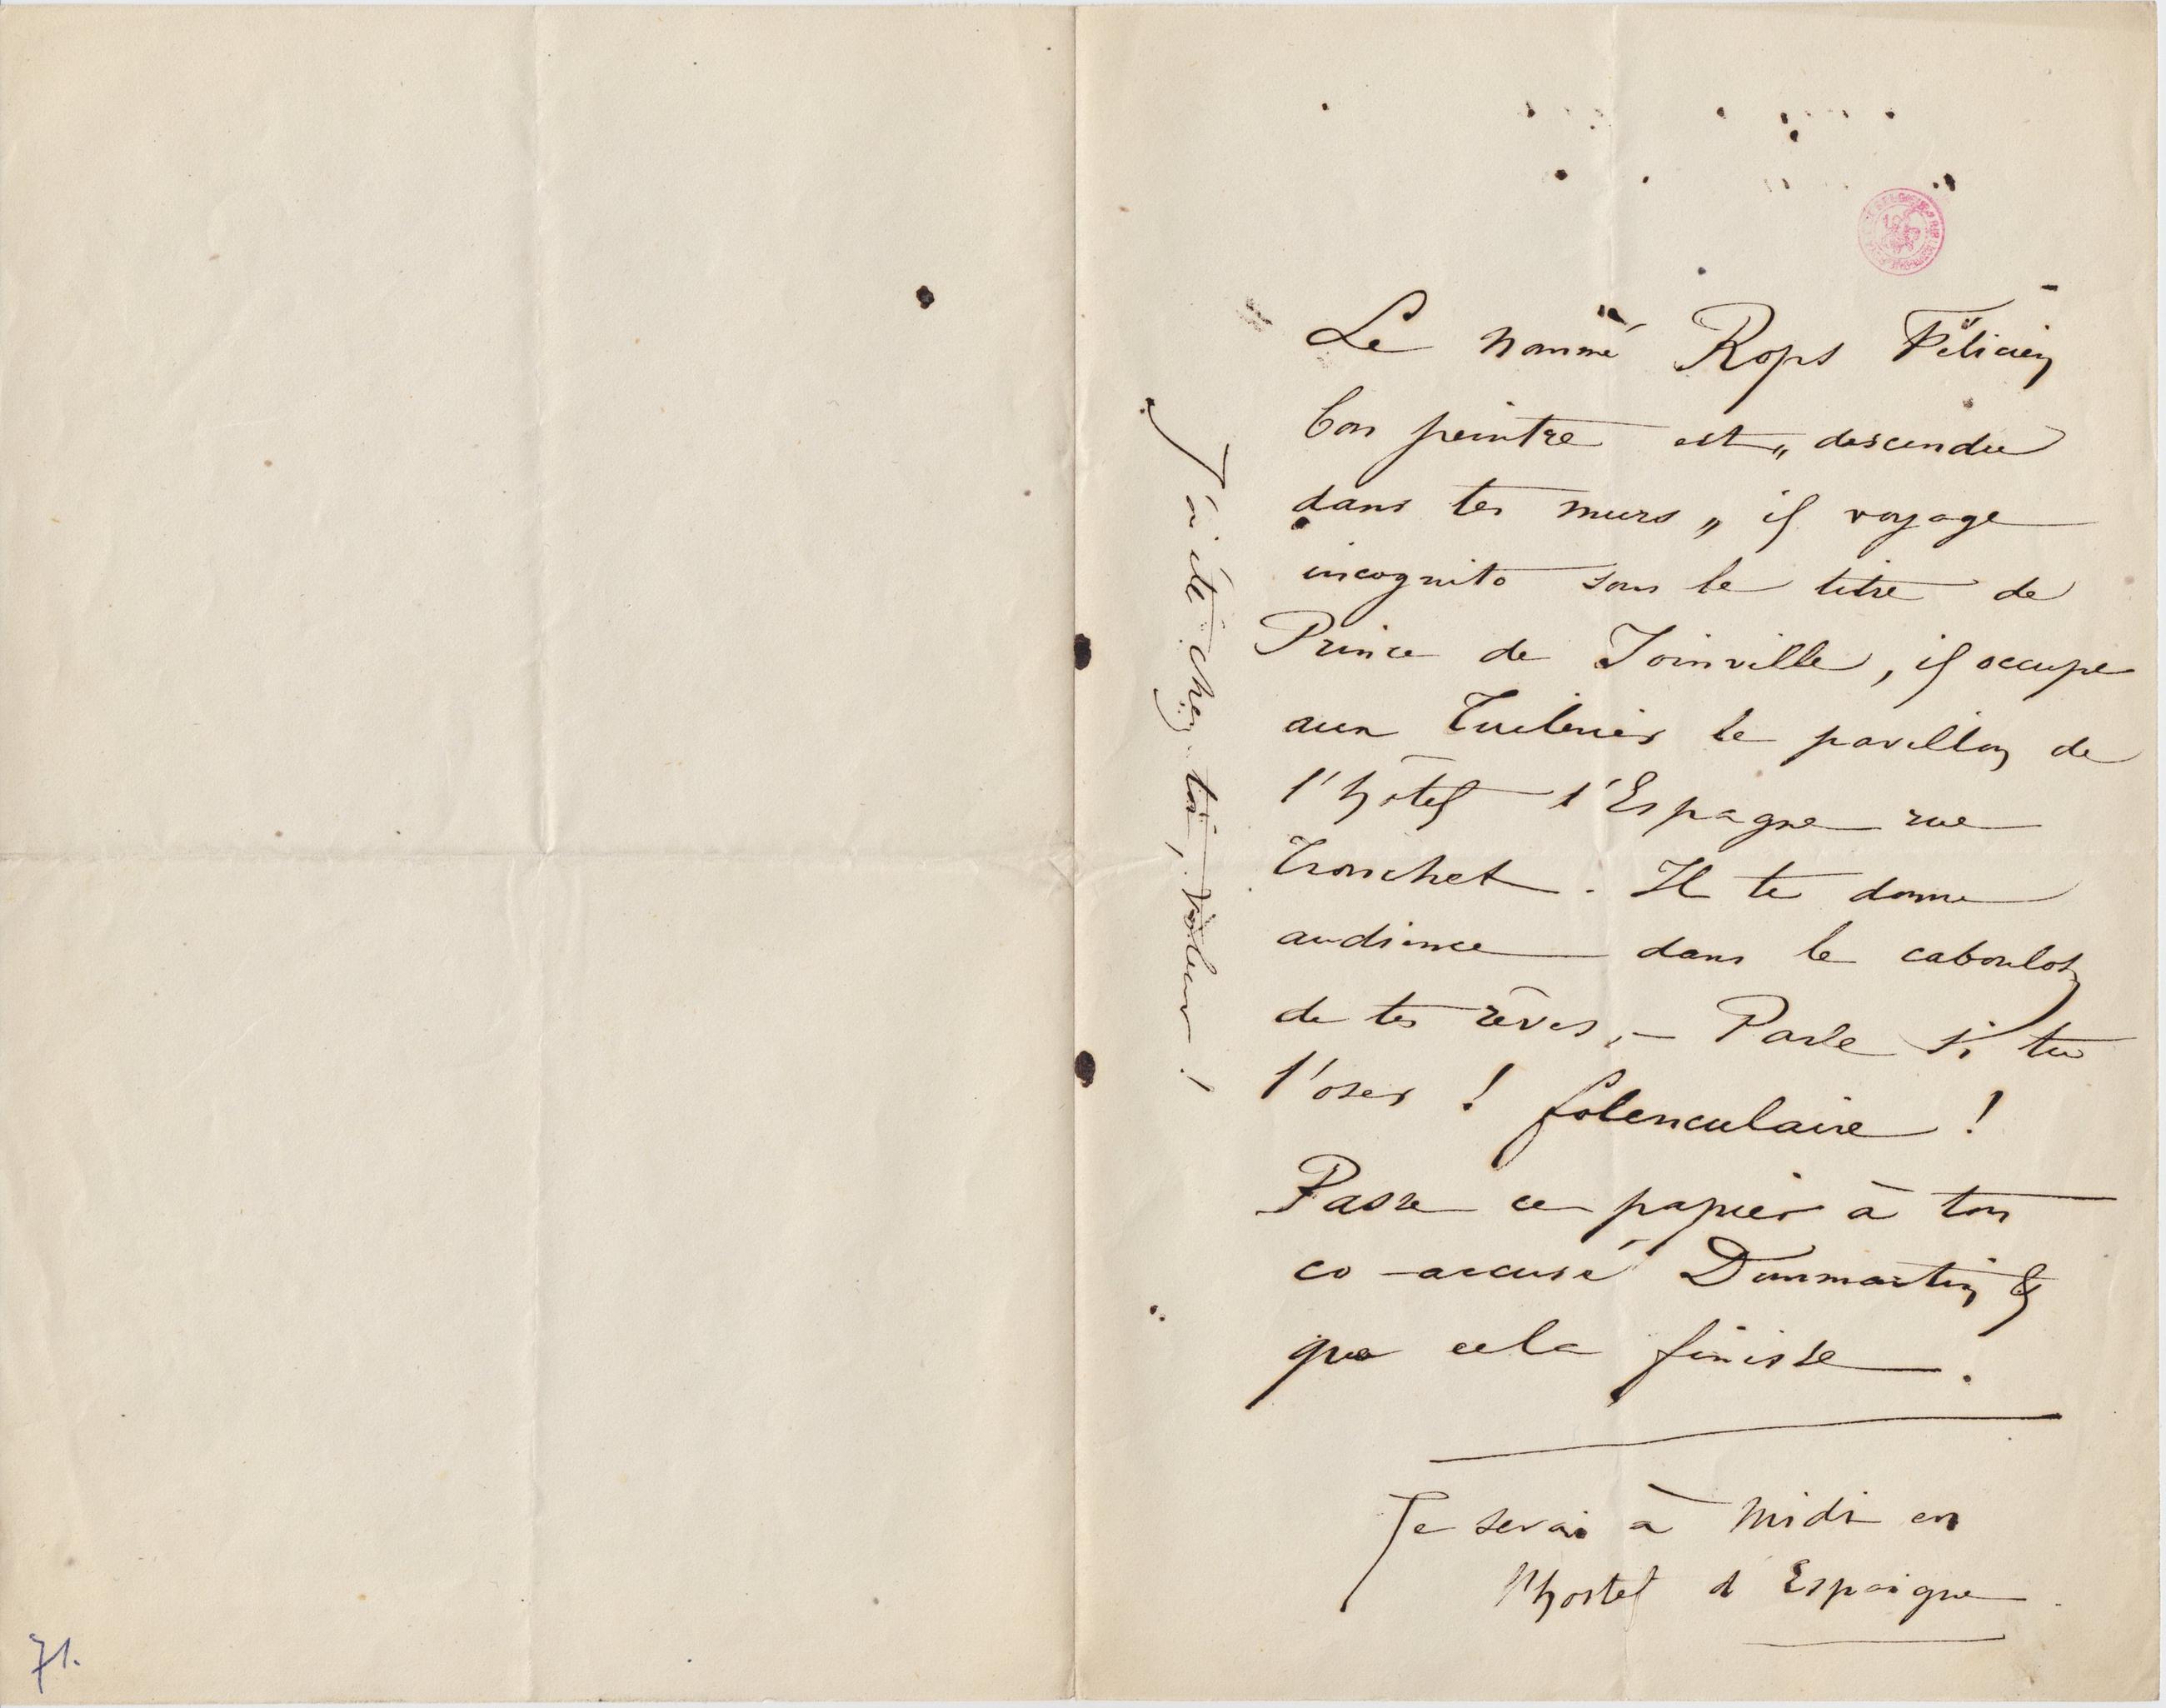 Le nommé Rops Félicien
bon peintre est „ descendu
dans tes murs „ il voyage
incognito sous le titre de
Prince de Joinville, il occupe
aux Tuileries le pavillon de
l'hôtel d'Espagne rue
Tronchet. Il te donne
audience dans le caboulot
de tes rêves, – Parle si tu
l'oses ! folenculaire !
Passe ce papier à ton
co-accusé Dommartin &
que cela finisse.
Je serai à midi en
l'hostel d'Espaigne
J'ai été chez toi, voleur !
71.